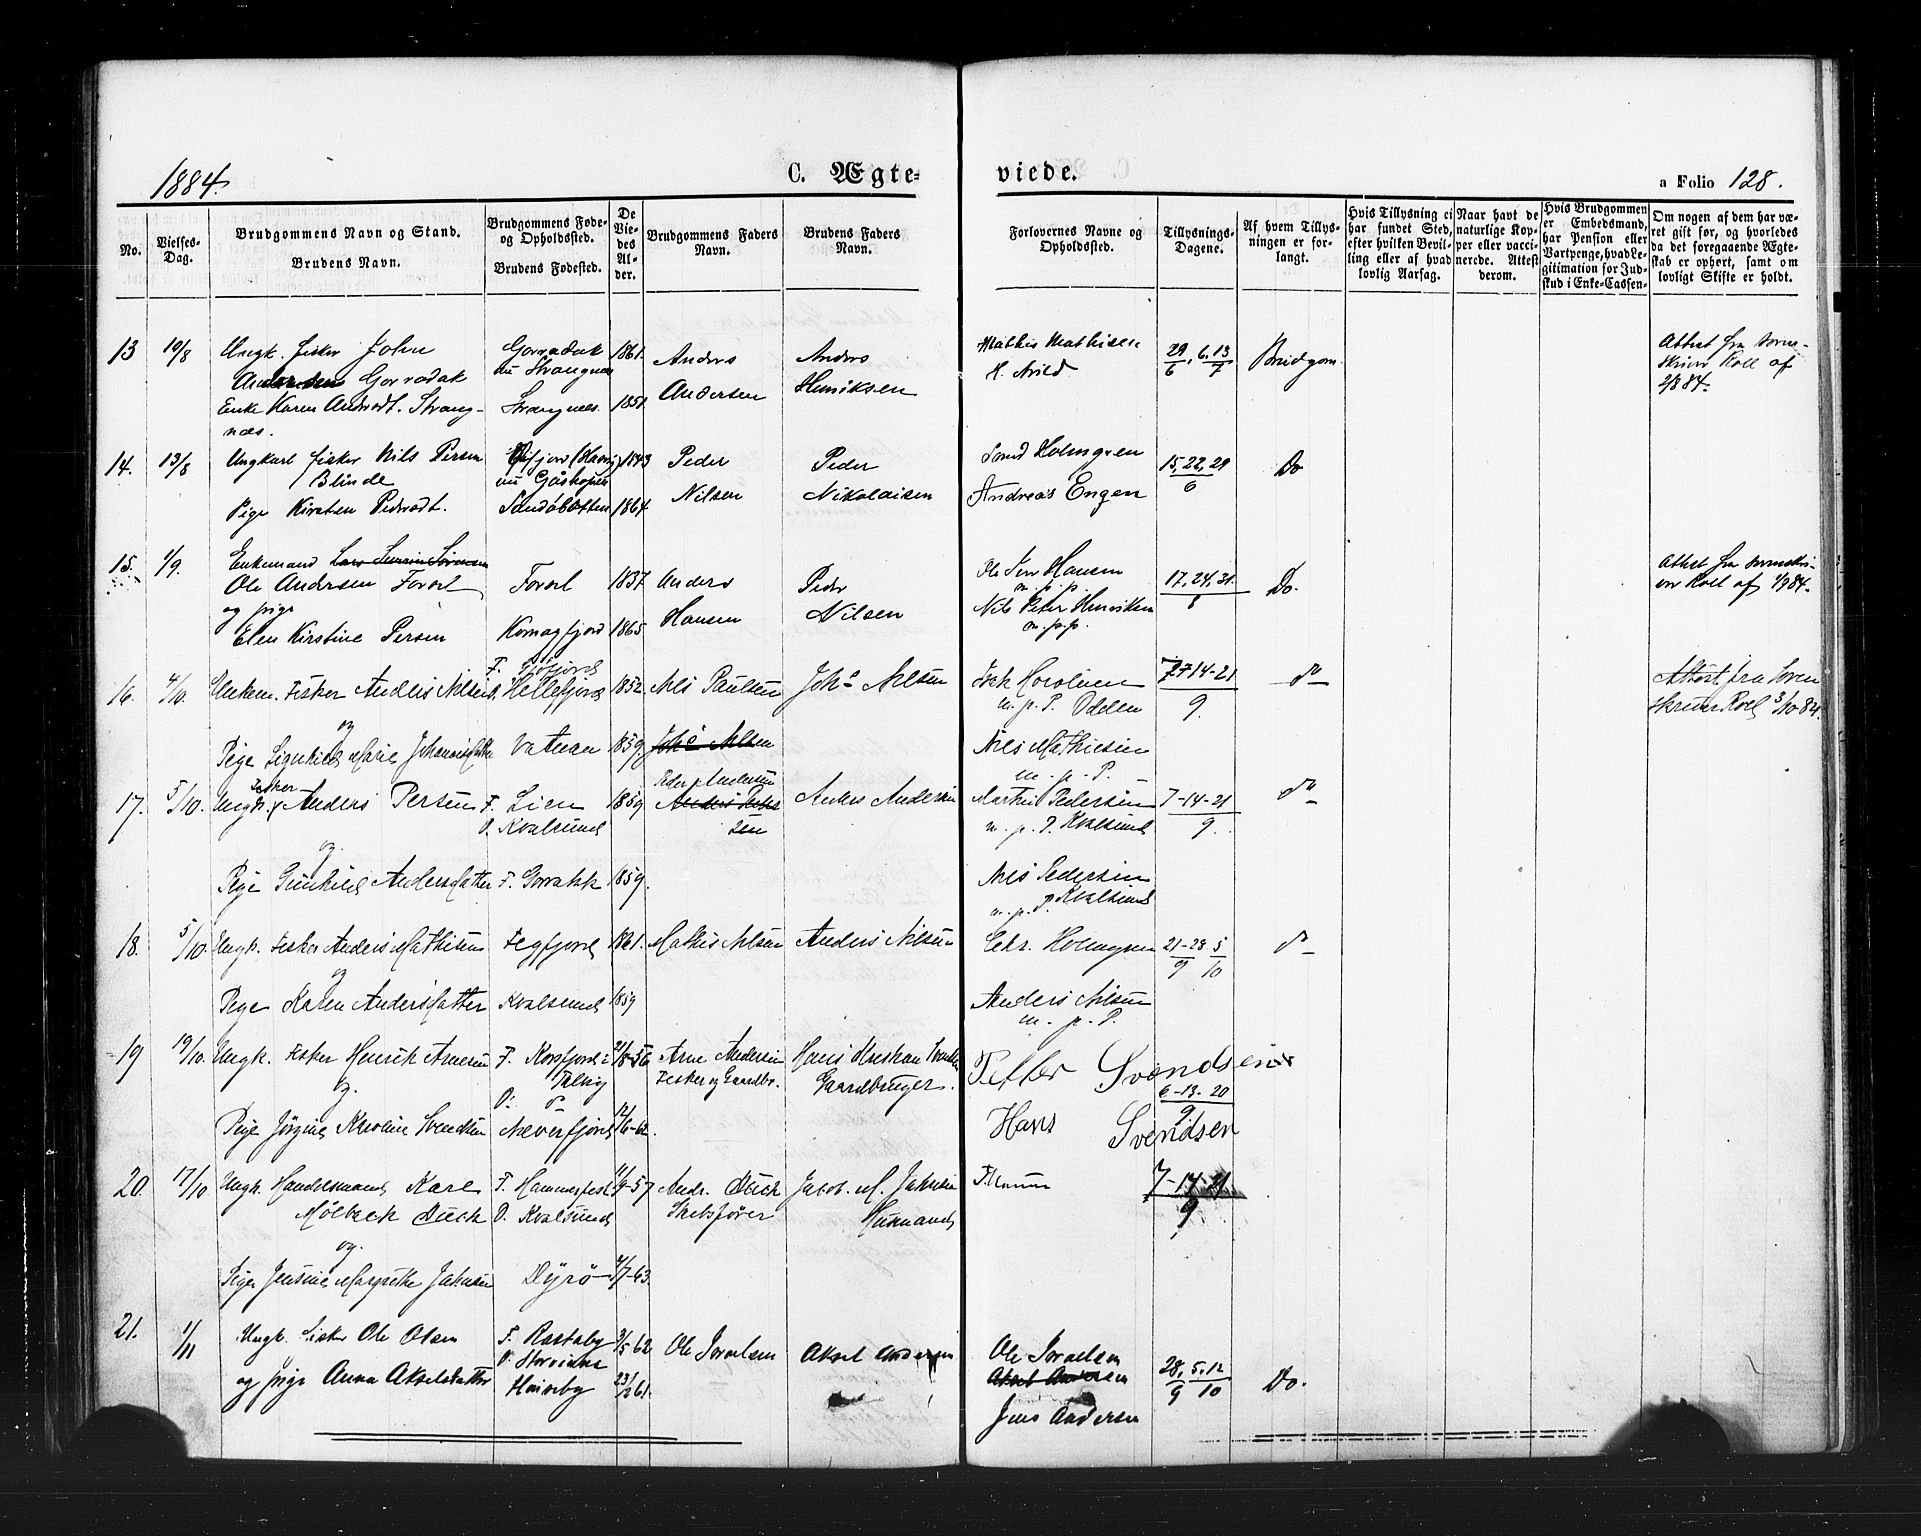 1884.
C. Ægte-
viede.
a Folio 128.
No.
Vielses-
Dag.
Brudgommens Navn og Stand.
Brudens Navn.
Brudgommens Føde-
og Opholdssted.
Brudens Fødested.
De
Vie-
des
Al-
der.
Brudgommens Faders
Navn.
Brudens Faders
Navn.
Forlovernes Navne og
Opholdssted.
Tillysnings-
Dagene.
Af hvem Tillys-
ningen er for-
langt.
Hvis Tillysning ei
har fundet Sted,
efter hvilken Bevil-
ling eller af hvad
lovlig Aarsag.
Naar havt de
naturlige Kop-
per eller vacci-
nerede. Attest
derom.
Hvis Brudgommen
er Embedsmand,
har Pension eller
Vartpenge, hvad Le-
gitimation for Ind-
skud i Enke-Cassen-
Om nogen af dem har væ-
ret gift før, og hvorledes
da det foregaaende Ægte-
skab er ophørt, samt om
lovligt Skifte er holdt.
13 10/8 Ungk. fisker John
Andersen Gorradak
Enke Karen Andersdt. Strang-
næs.
Gorradak
Strangnæs
Strangnæs.
1861.
1851.
Anders
Andersen
Anders
Henriksen
Mathis Mathisen
H. Avild
29/6, 6.13/7
Brudgom
Attest fra Soren-
skriver Koll af
2/8 84.
14. 13/8 Ungkarl fisker Nils Persen
Blinde
Pige Kirsten Pedersdt.
1843
1864
Peder
Nilsen
Peder
Nikolaisen
Holmgren
Andreas Engen
15, 22, 29
6
Do
15. 1/9. Enkemand
Ole Andersen Forsol
og pige
Elen Kirstine Persen
Forsol
Kornagfjord
1837.
1865
Anders
Hansen
Peder
Nilsen
Hansen
m.p.p.
Nils Peter Henriksen
m.p.p.
17, 24, 31
8
Do.
Attest fra Sorenskri-
ver Koll af 1/9 84.
16. 4/10. Enkem. Fisker Anders Nilsen
og
Pige Marie
F.
Hellefjord
1852.
1859.
Nils Paulsen
Joh: Nilsen
Joh: Nilsen
m. p. P.
Nils Mathiesen
m. p. P.
7-14-21
9.
do
Attest fra Soren
skriver Koll 3/10 84.
17. 5/10. Ungk. Fisker Anders Persen
og
Pige Gunhild Andersdatter
F. Lien
O. Kvalsund
F. Gorrakk
1859
1859.
Peder Andersen
Anders Peder
sen
Anders Andersen
Martin Pedersen
m. p. P. Kvalsund
Nils Pedersen
m. p. P. Kvalsund
7-14-21
9.
do
18. 5/10. Ungk. Fisker Anders Mathisen
og
Pige Karen Andersdatter
Fegfjord
Kvalsund
1861.
1859
Mathis Nilsen
Anders Nilsen
Chr. Holmgren
Anders Nilsen
m. p. P.
21-28/9 5/10
do
19 19/10. Ungk. Fisker Henrik Arnesen
og
Pige Jørgine Karoline Svendsen
F. Korsfjord i
Talvig
O.
Neverfjord
21/8-56
12/6-62.
Arne Andersen
Fisker og Gaardbr.
Hans Kristian Svendsen
Gaardbruger.
Petter Svendsen
6-13-20
9
Hans Svendsen
20. 17/10 Ungk. Handelsmand Karl
Mølbeck Buck
og
Pige Jensine Margrethe Jakobsen
F. Hammerfest
O. Kvalsund
Dyrø
11/9-57
4/7-63.
Andr. Buck
Skibsfører
Jacob. M. Jakobsen
Husmand
7-14-21
9
21. 1/11 Ungk. Fisker Ole Olsen
og pige Anna Akselsdatter
F. Rastaby
O.
3/5-62
23/2 61.
Ole Israelsen
Aksel Andersen
Ole Israelsen
Aksel Andersen
Jens Andersen
28/9, 5.12/10
Do.